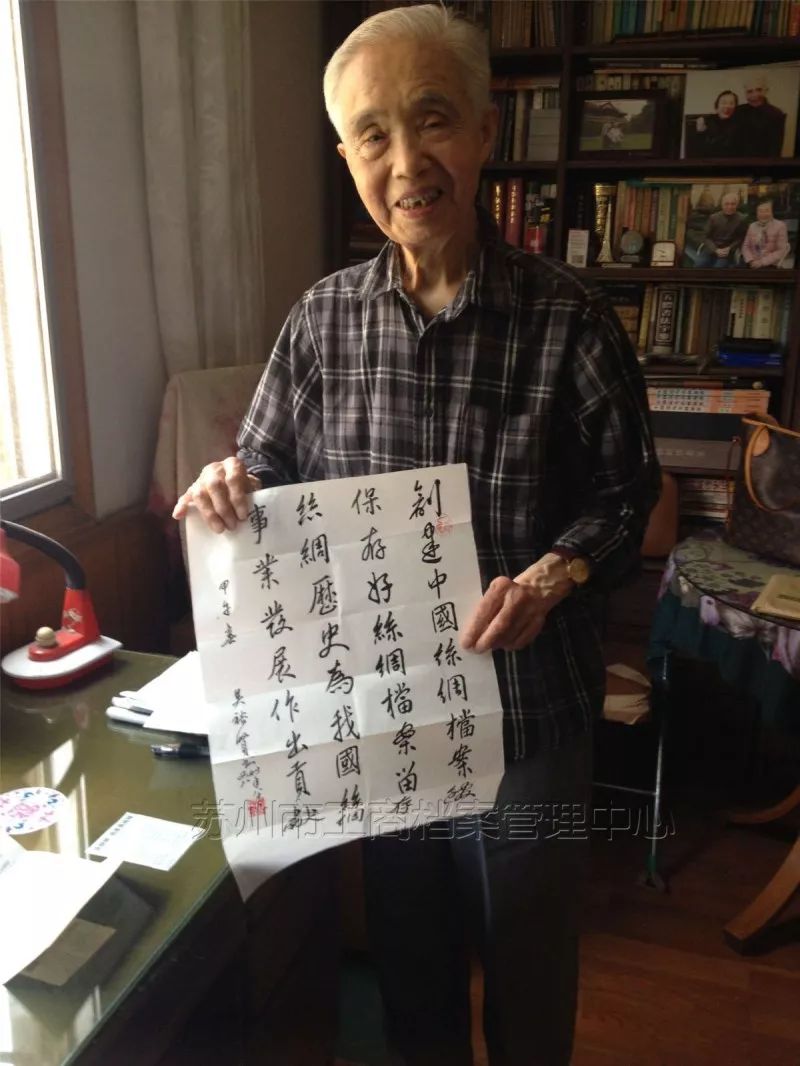 創建中國絲綢檔案館
保存好絲綢檔案留存
絲綢歷史為我國絲綢
事業發展作出貢獻
甲午春
吳裕賢
苏州市工商档案管理中心